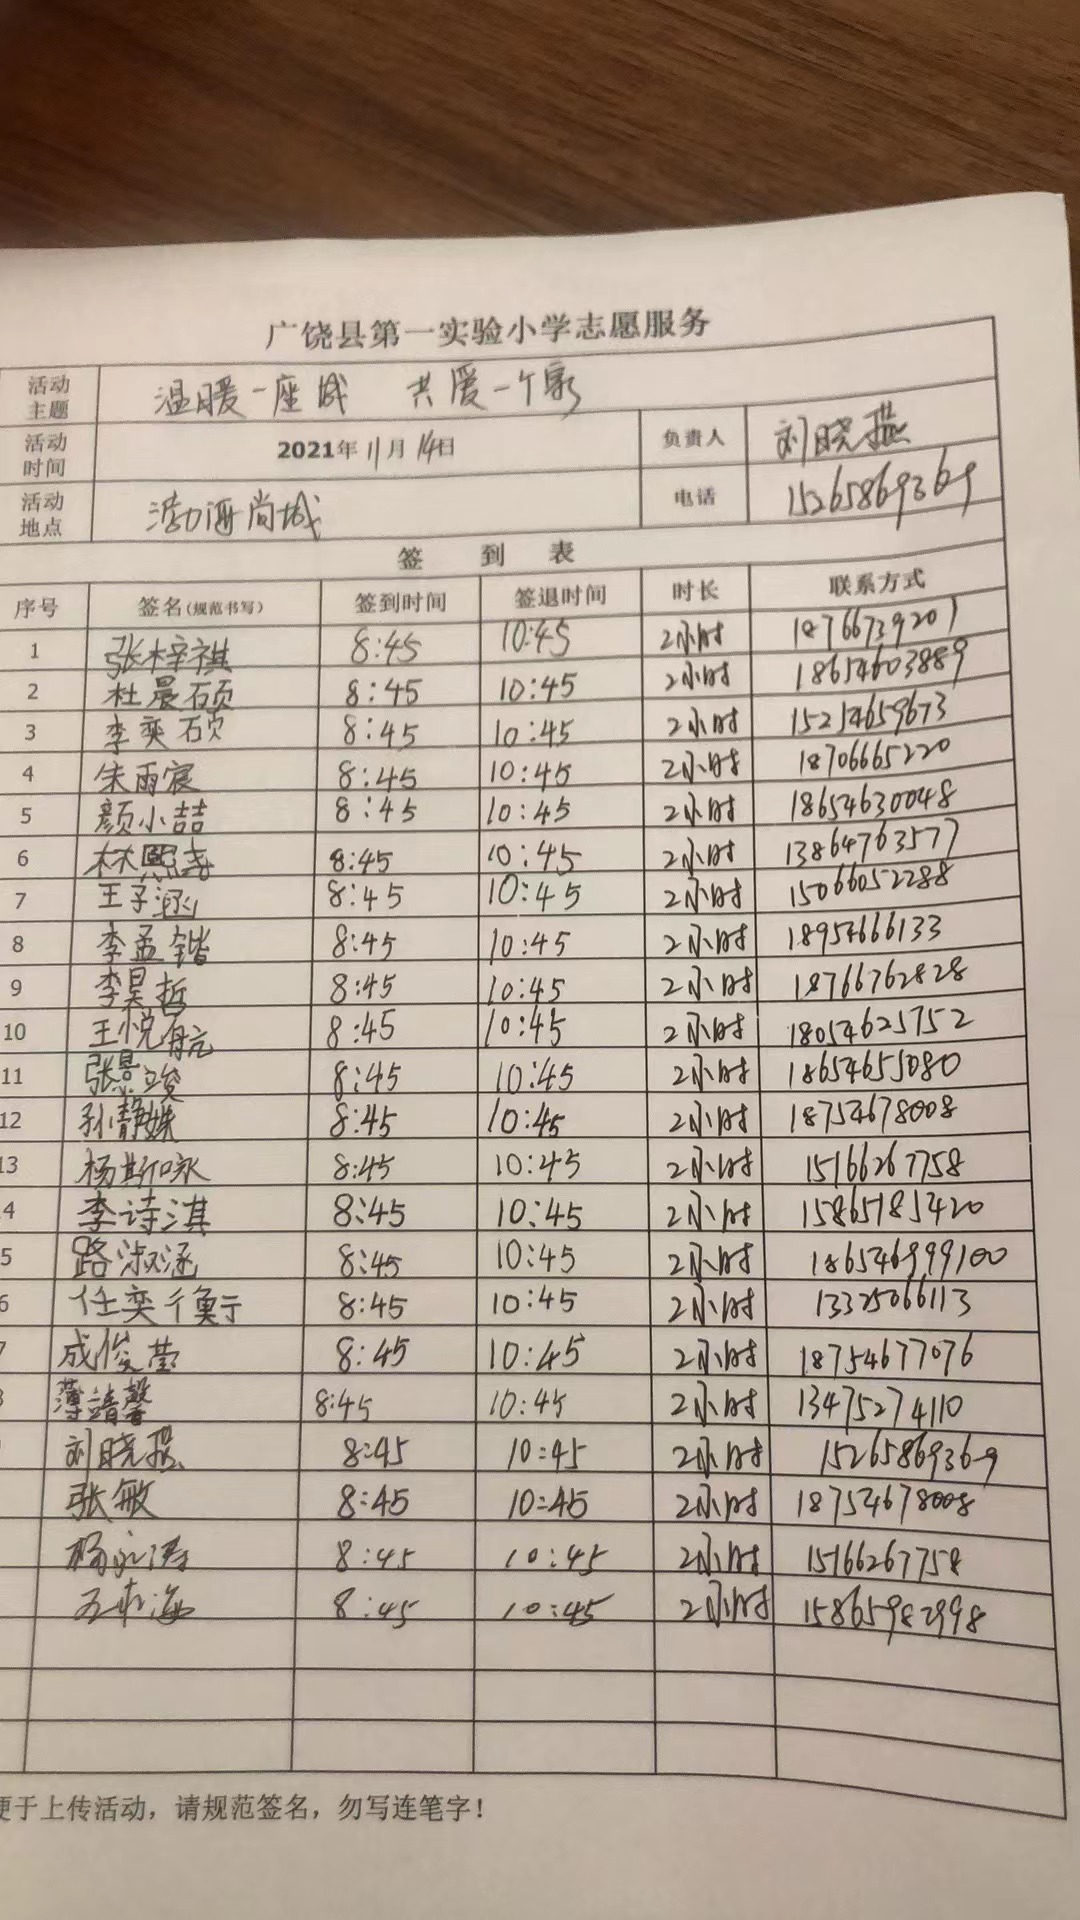 广饶县第一实验小学志愿服务
活动主题 温暖一座城 共爱一个家
活动时间 2021年11月14日 负责人 刘晓燕
活动地点 渤海尚城 电话 15265869369
签 到 表
序号 签名(规范书写) 签到时间 签退时间 时长 联系方式
1 张梓祺 8:45 10:45 2小时 18766739201
2 杜晨硕 8:45 10:45 2小时 18654603889
3 李奕硕 8:45 10:45 2小时 15254659673
4 朱雨宸 8:45 10:45 2小时 18706665220
5 颜小喆 8:45 10:45 2小时 18654630048
6 林熙尧 8:45 10:45 2小时 13864763577
7 王子涵 8:45 10:45 2小时 15066052288
8 李孟锴 8:45 10:45 2小时 18954666133
9 李昊哲 8:45 10:45 2小时 18766762828
10 王悦航 8:45 10:45 2小时 18054625752
11 张景竣 8:45 10:45 2小时 18654655080
12 孙静姝 8:45 10:45 2小时 18754678008
13 杨斯咏 8:45 10:45 2小时 15166267758
4 李诗淇 8:45 10:45 2小时 15865785420
5 路淑涵 8:45 10:45 2小时 186546999100
6 任奕衡 8:45 10:45 2小时 13325066113
7 成俊莹 8:45 10:45 2小时 18754677076
8 薄靖馨 8:45 10:45 2小时 13475274110
刘晓燕 8:45 10:45 2小时 15265869369
张敏 8:45 10:45 2小时 18754678008
杨永涛 8:45 10:45 2小时 15166267758
8:45 10:45 2小时 15865982998
便于上传活动，请规范签名，勿写连笔字！